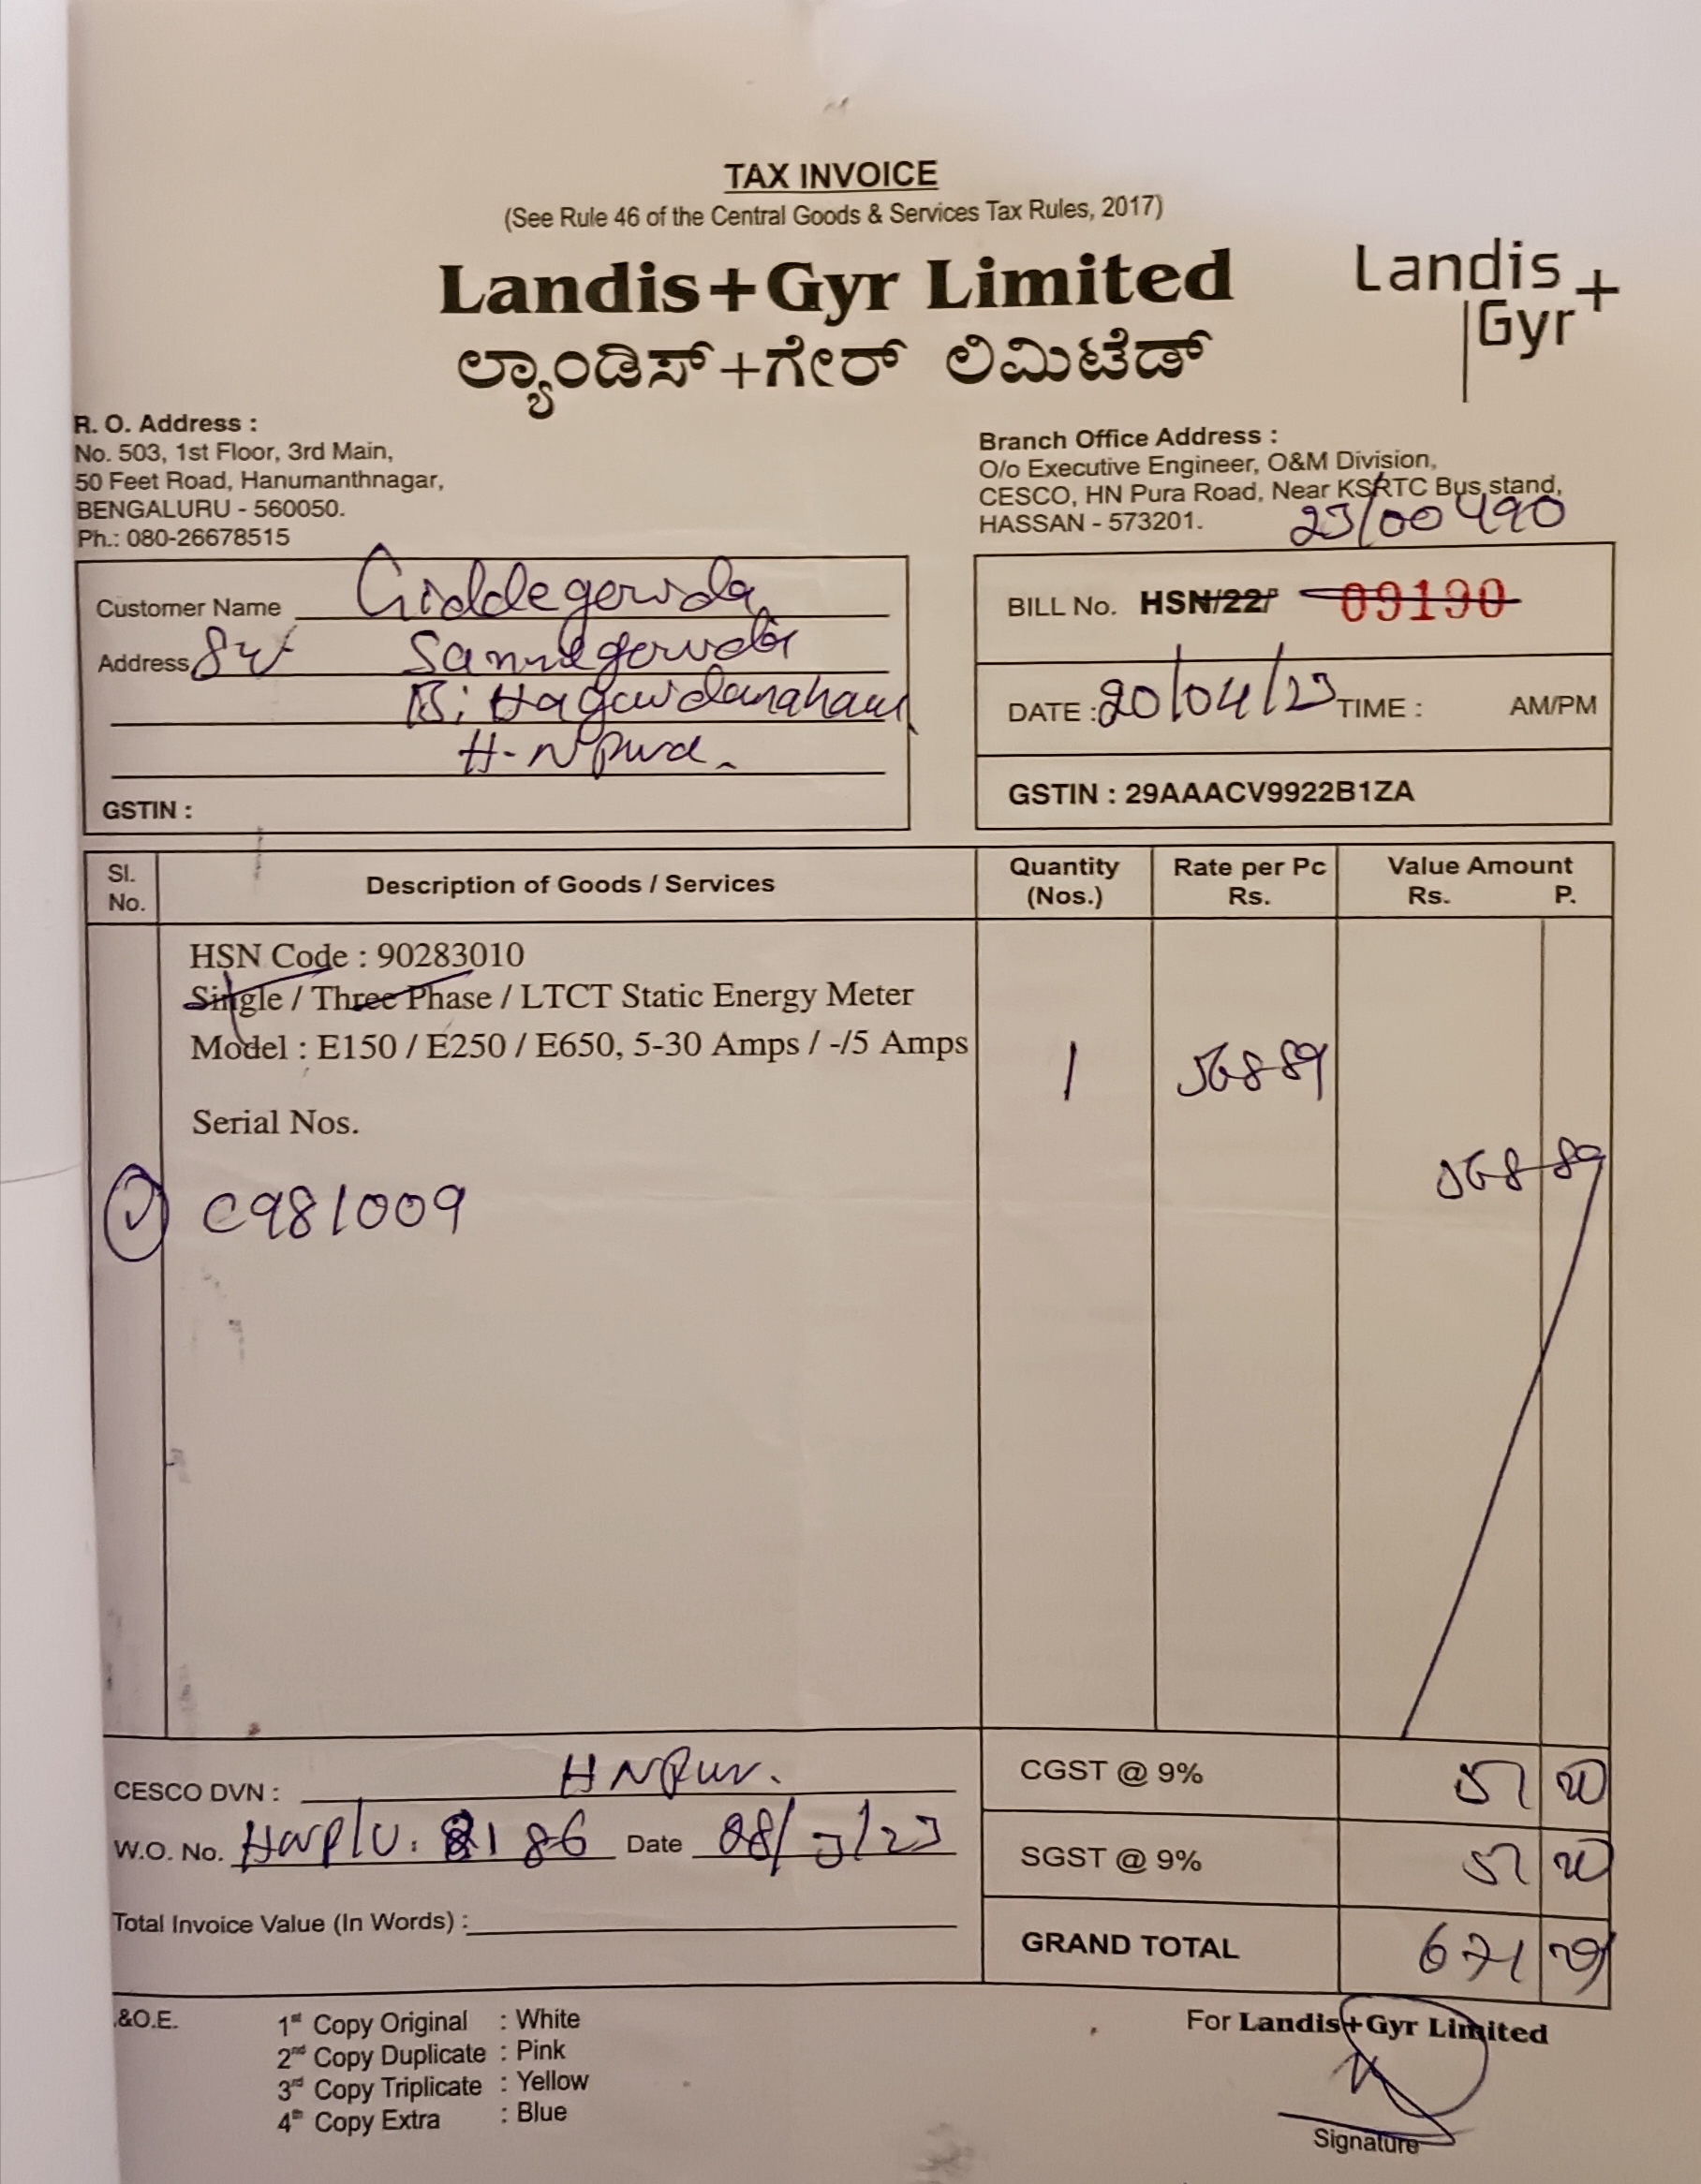 TAX INVOICE
(See Rule 46 of the Central Goods & Services Tax Rules, 2017)
Landis+Gyr Limited
ಲ್ಯಾಂಡಿಸ್+ಗೇರ್ ಲಿಮಿಟೆಡ್
Landis
Gyr+
R. O. Address :
No. 503, 1st Floor, 3rd Main,
50 Feet Road, Hanumanthnagar,
BENGALURU - 560050.
Ph.: 080-26678515
Branch Office Address :
O/o Executive Engineer, O&M Division,
CESCO, HN Pura Road, Near KSRTC Bus stand,
HASSAN - 573201.
23/00490
Customer Name Giddegowda
Address Sannegowda
H-N pura.
GSTIN :
BILL No. HSN/22/ 09190
DATE : 20/04/23 TIME : AM/PM
GSTIN : 29AAACV9922B1ZA
Sl. No. Description of Goods / Services Quantity (Nos.) Rate per Pc Rs. Value Amount Rs. P.
HSN Code : 90283010
Single / Three Phase / LTCT Static Energy Meter
Model : E150 / E250 / E650, 5-30 Amps / -/5 Amps 1 568-89
Serial Nos.
568-89
C981009
CESCO DVN : HNPur.
W.O. No. 86 Date /23
Total Invoice Value (In Words) :
CGST @ 9% 51 20
SGST @ 9% 51 20
GRAND TOTAL 671 29
.&O.E.
1st Copy Original : White
2nd Copy Duplicate : Pink
3rd Copy Triplicate : Yellow
4th Copy Extra : Blue
For Landis+Gyr Limited
Signature